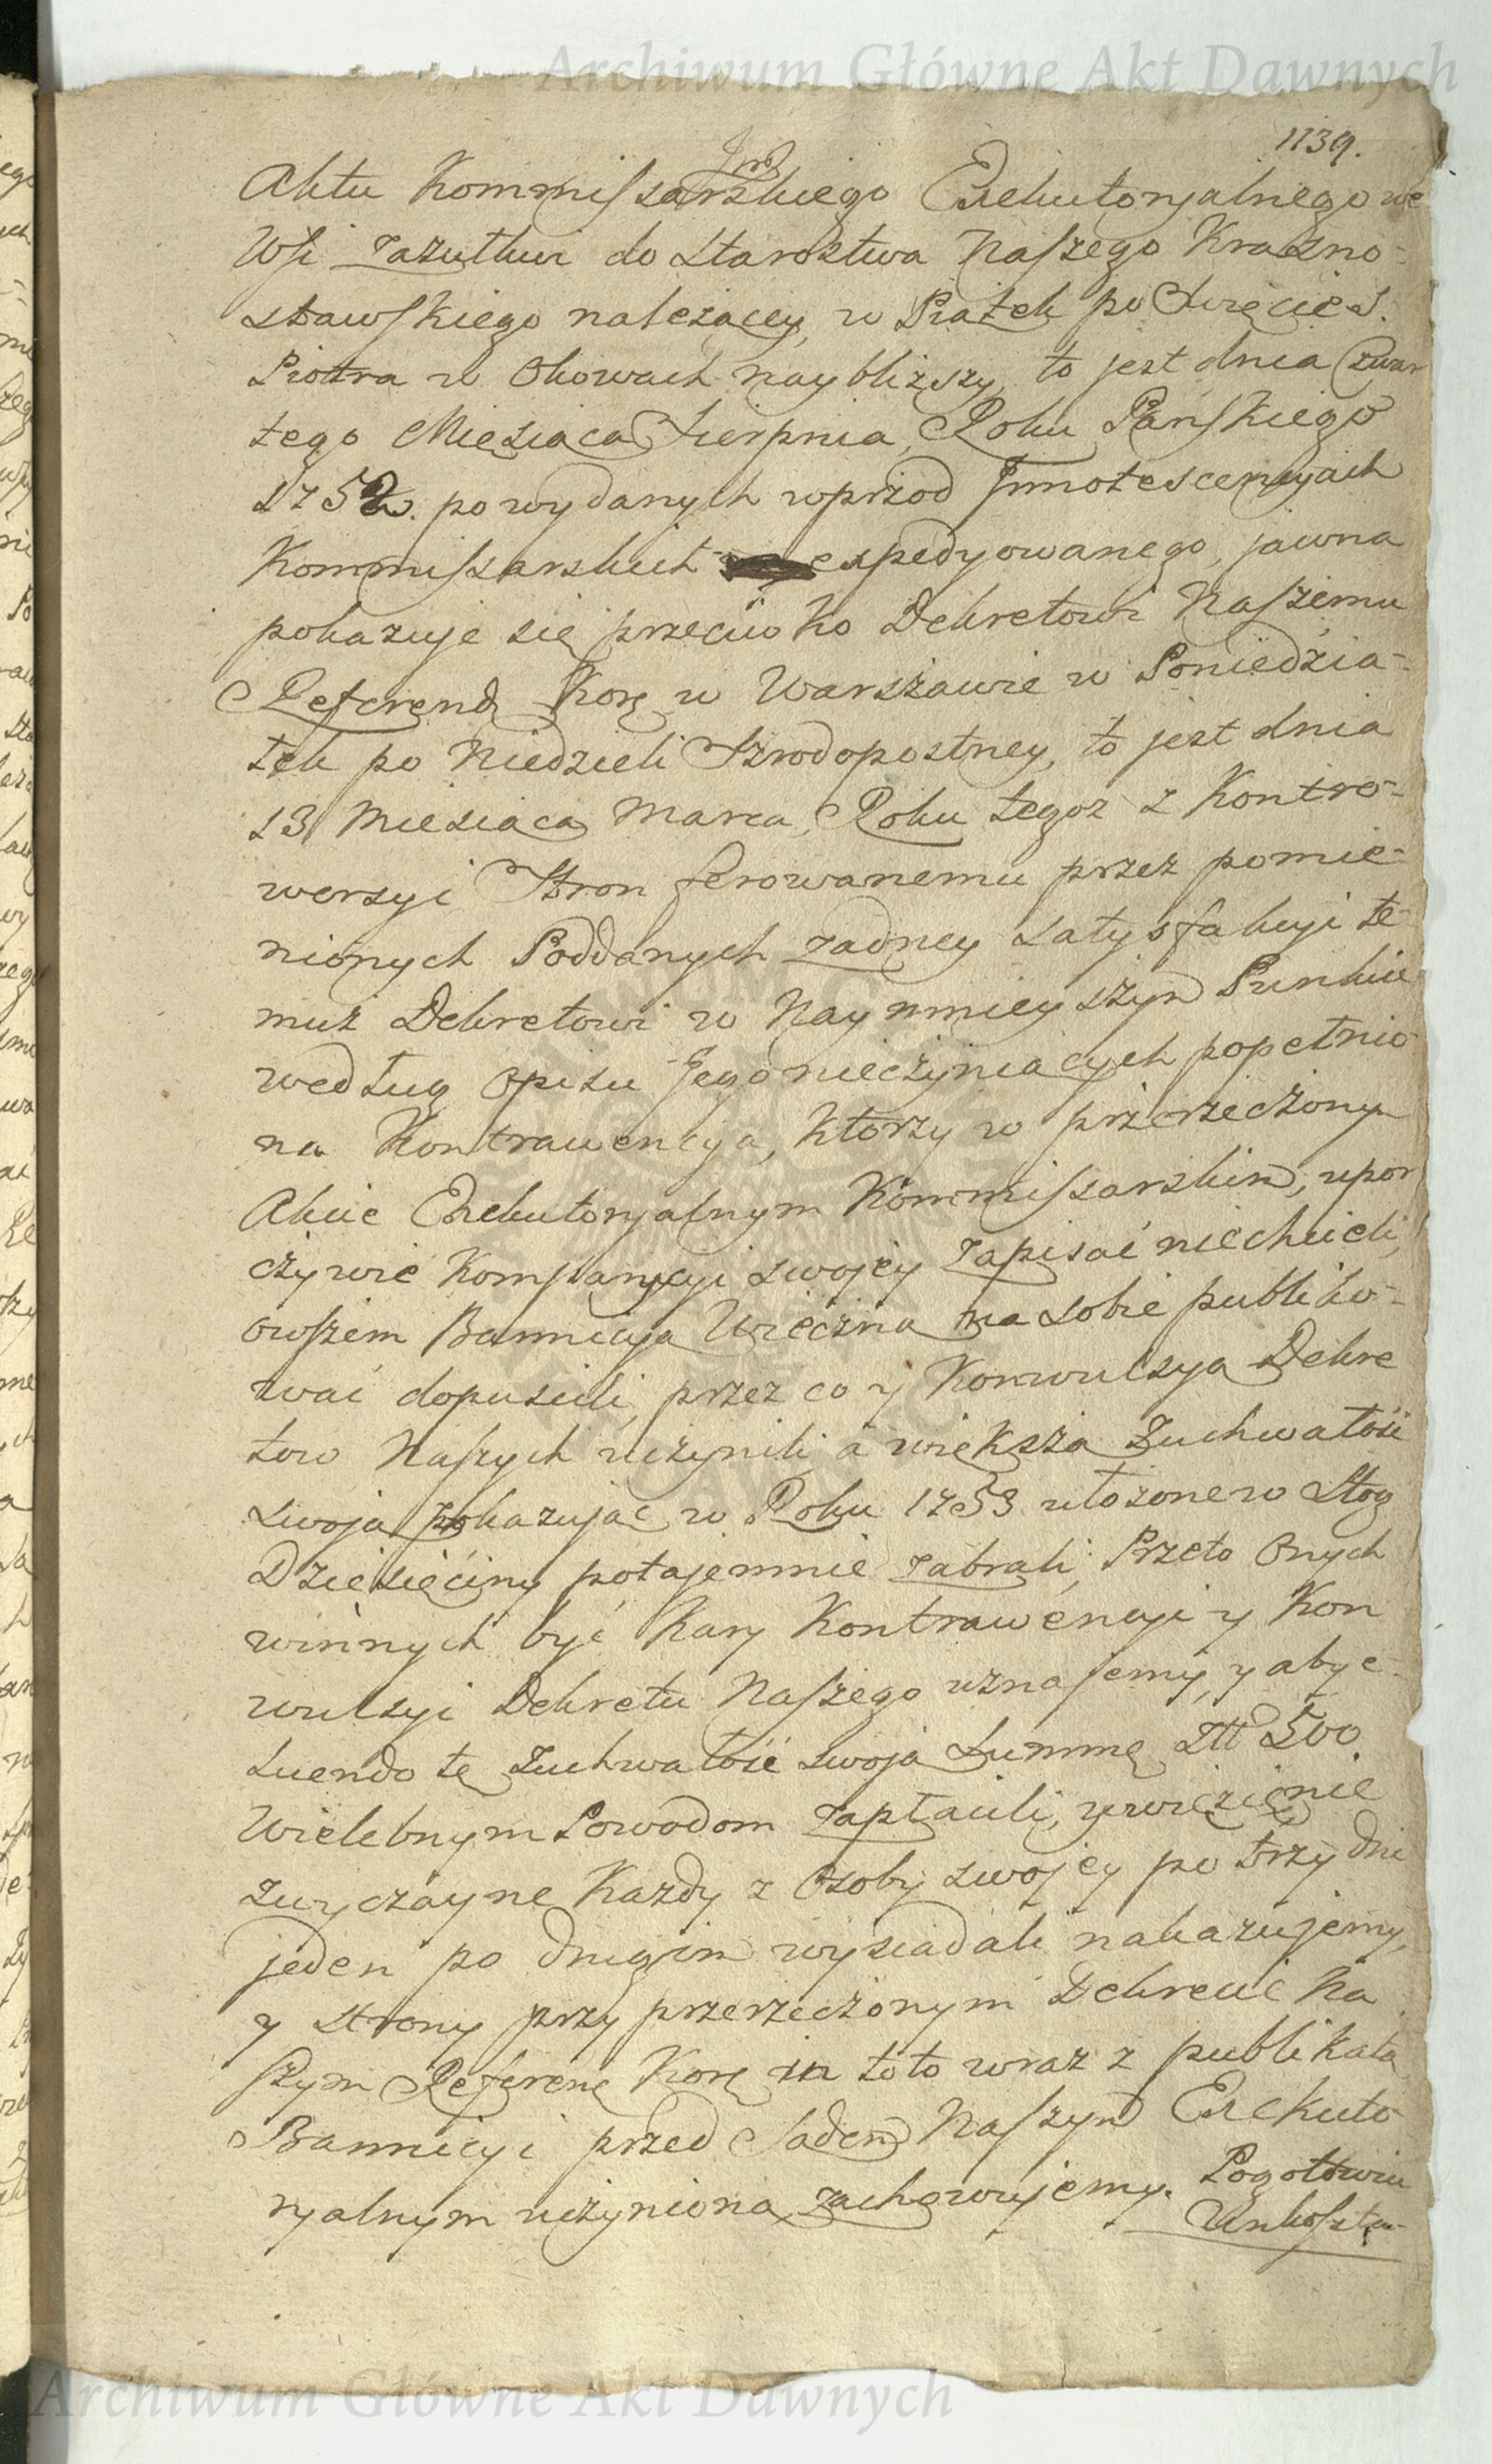 Archiwum Główne Akt Dawnych
1139.
Aktu Kommissarskiego Exekutoryalnego we
Wsi Zazulkwi do Starostwa Naszego Krasno-
stawskiego należącey, w Piątek po Święcie S.
Piotra w Okowach naybliższy, to jest dnia Czwar
tego Miesiąca Sierpnia, Roku Pańskiego
1752. po wydanych wprzod Innotescencyach
Kommissarskich expedyowanego, jawna
pokazuje się przeciwko Dekretowi Naszemu
Referend Korę w Warszawie w Poniedzia-
łek po Niedzieli Szrodopostney, to jest dnia
13 Miesiąca Marca, Roku tegoż z Kontro-
wersyi Stron ferowanemu przez pomie-
nionych Poddanych żadney satysfakcyi te-
muż Dekretowi w Naymnieyszym Punkcie
według Opisu Jego nieczyniących popełnio-
na Kontrawencya, Ktorzy w przerzeczonym
Akcie Exekutoryalnym Kommissarskim, upor
czywie Komparycyi swojey zapisać niechcieli,
owszem Bannicyą Wieczną na sobie publiko-
wać dopuścili, przez co y Konwulsyą Dekre
tow Naszych uczynili, a większą Zuchwałość
swoją pokazując w Roku 1753 ułożone w Stog
Dziesięciny potajemnie zabrali, Przeto Onych
winnych być Kary Kontrawencyi y Kon
wulsyi Dekretu Naszego uznajemy, y aby e-
luendo tę zuchwałość swoją Summę Złł 500
Wielebnym Powodom zapłacili, y więzienie
zwyczayne Każdy z Osoby swojey po trzy dni
jeden po drugim wysiadali nakazujemy,
y strony przy przerzeczonym Dekrecie Na
szym Referenę Korę in toto wraz z publikatą
Bannicyi przed Sądem Naszym Exekuto
ryalnym uczynioną zachowujemy. Pogotowiu
Unkoszta-
Archiwum Główne Akt Dawnych